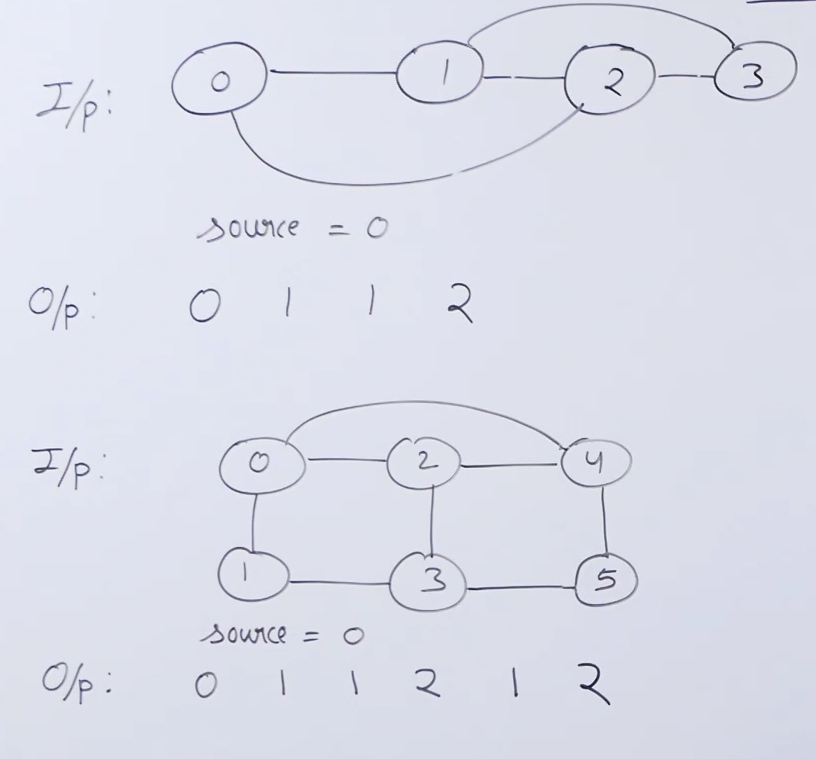 I/p: 0 1 2 3
source = 0
O/p: 0 1 1 2
I/p: 0 2 4
1 3 5
source = 0
O/p: 0 1 1 2 1 2